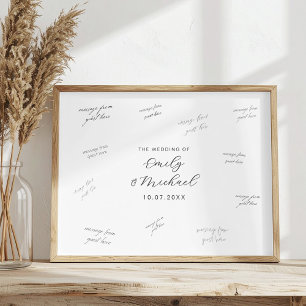 message from
guest here
message from
guest here
message from
guest here
message from
guest here
message from
guest here
THE WEDDING OF
Emily
& Michael
10.07.20XX
message from
guest here
message from
guest here
message from
guest here
message from
guest here